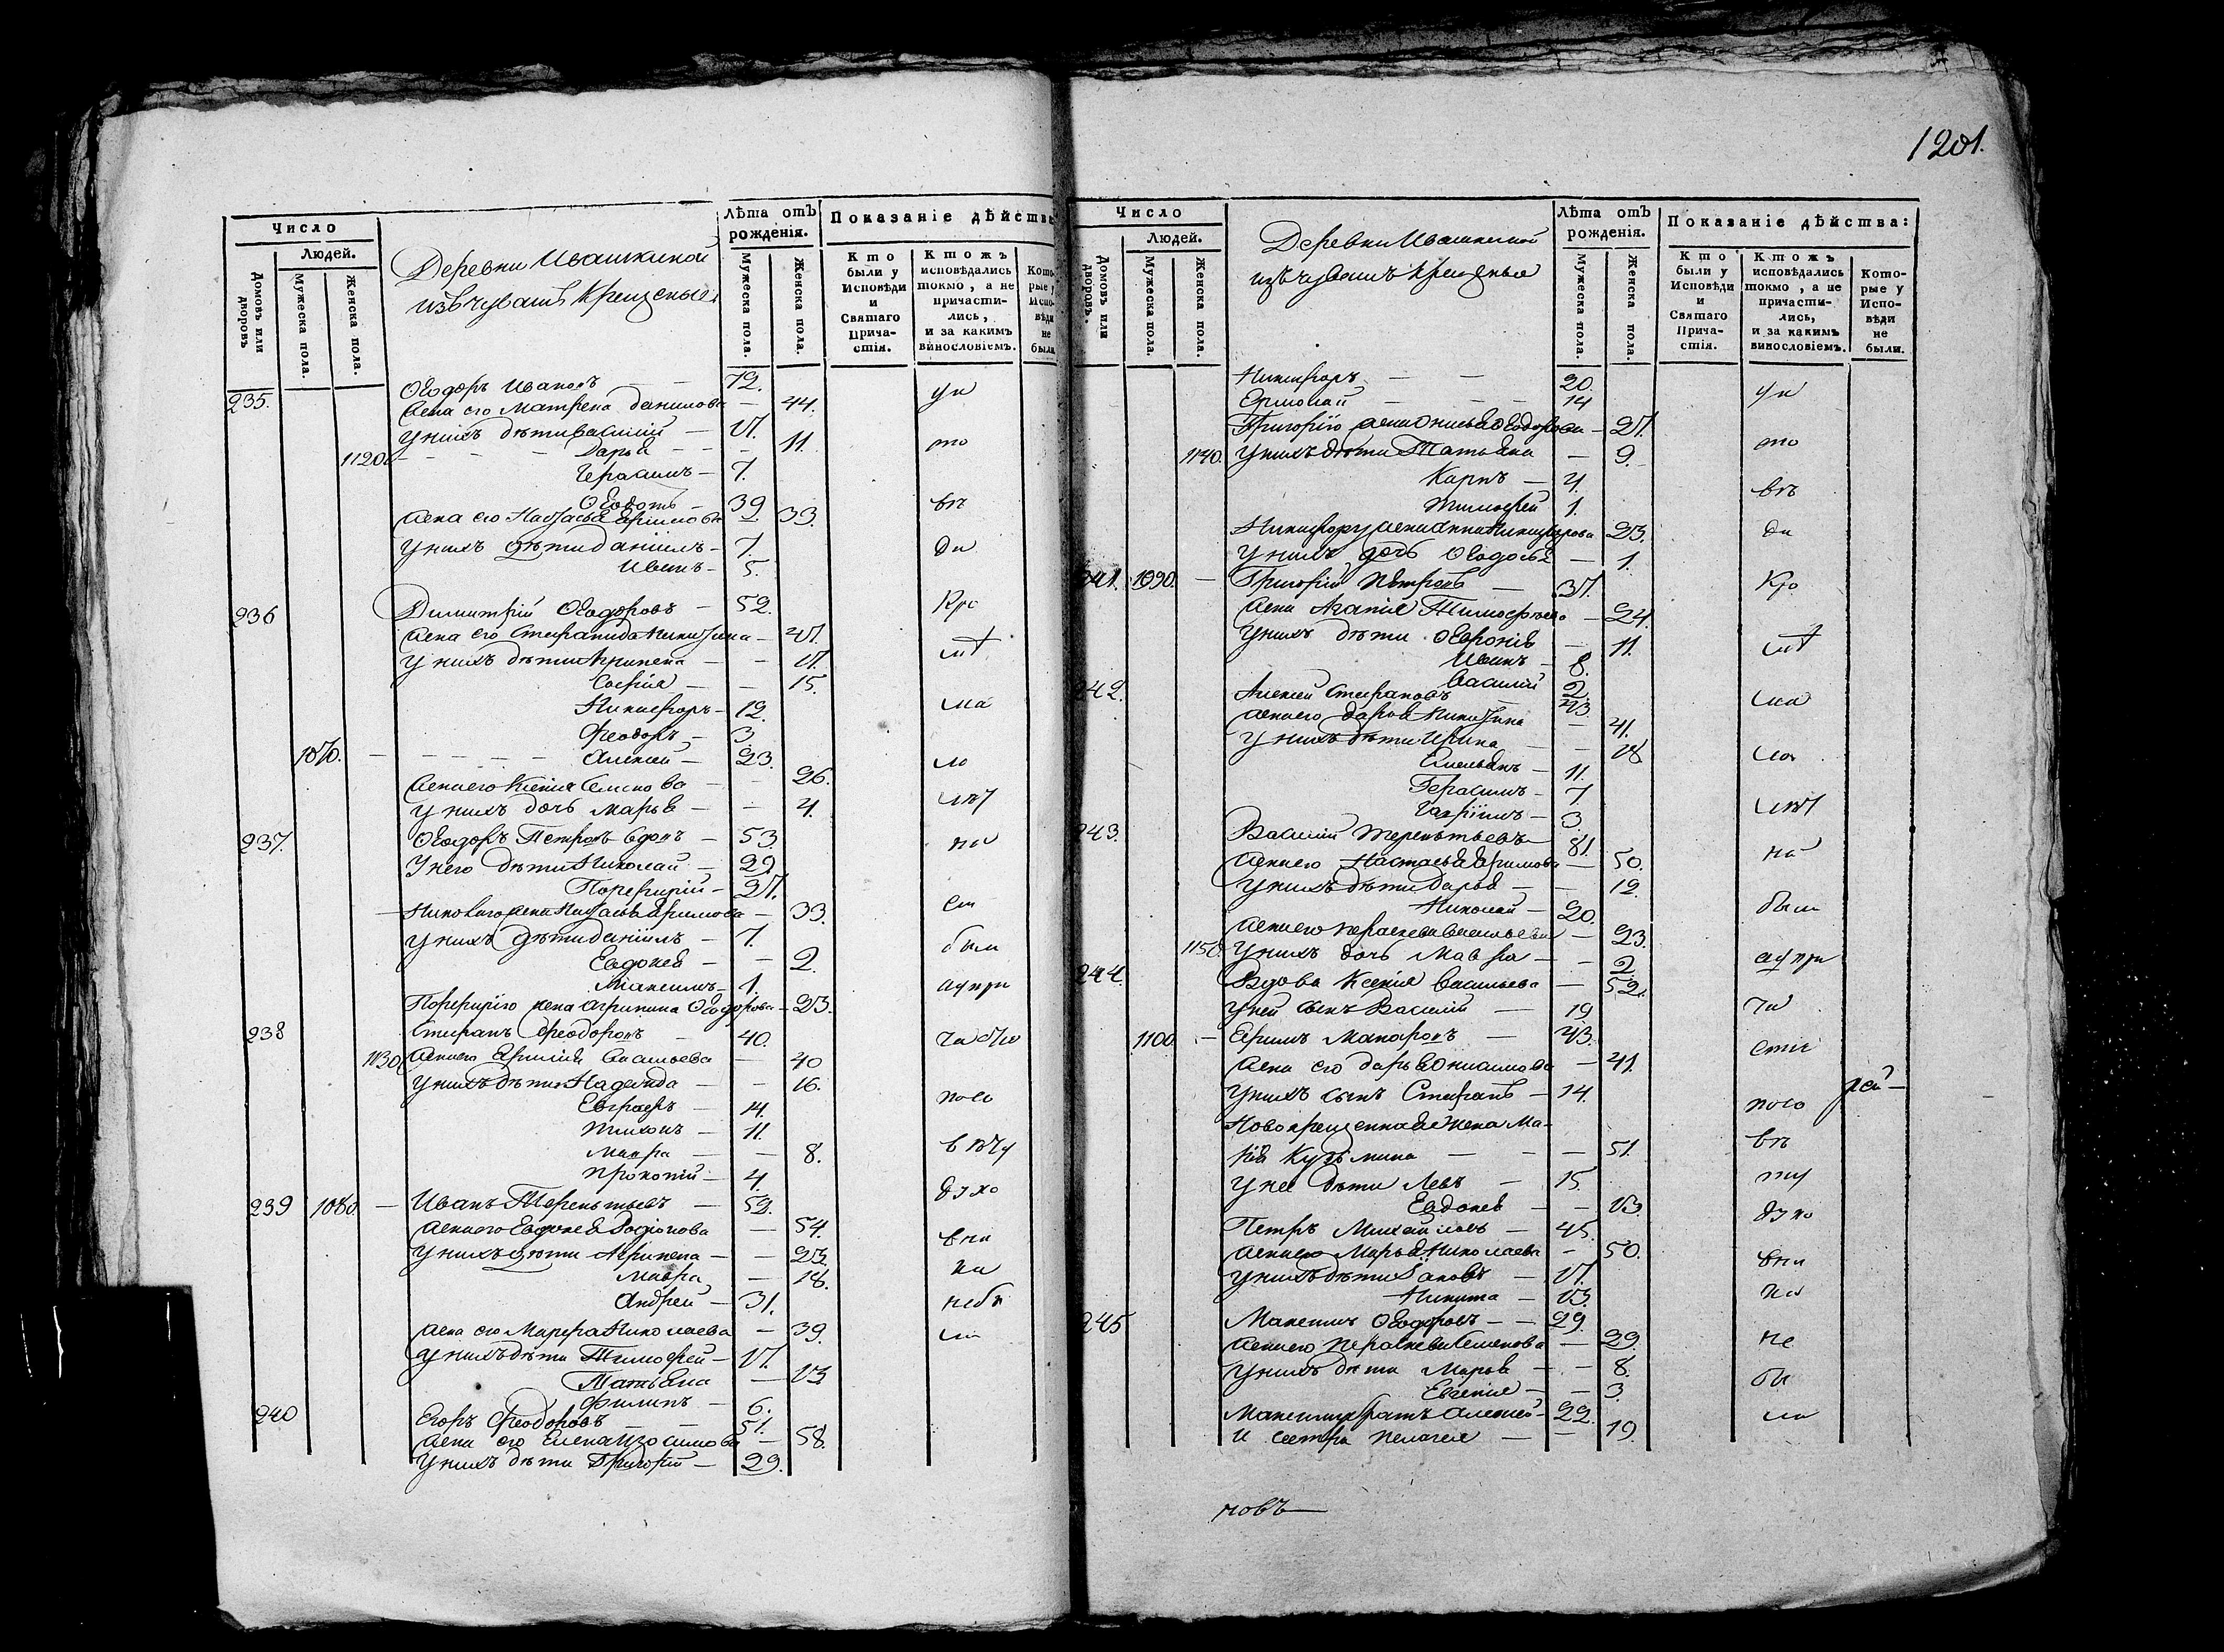 1201.
Число
Людей.
Домовъ или дворовъ
Мужеска пола.
Женска пола.
Деревни Ивашкиной
изъ чувашъ крещеные
Лѣта отъ рожденія.
Мужеска пола.
Женска пола.
Показаніе дѣйства
Кто были у Исповѣди и Святаго Прича-стія.
Ктожъ исповѣдались токмо, а не причасти-лись, и за какимъ винословіемъ.
Кото-рые у Испо-вѣди не были
235. Ѳеодоръ Ивановъ — 72. уи
жена его Матрена Данилова — 44.
у нихъ дѣти Василий —
1120. Дарья — 11. то
Герасимъ — 7.
Ѳедотъ — 39 въ
жена его Настасья Ефимова — 33.
у нихъ дѣти Даніилъ — 7. ди
Иванъ — 5.
236 Димитрій Ѳеодоровъ — 52. Кро
жена его Степанида Никитина —
у нихъ дѣти Агрипена —
Софія — 15.
Никифоръ — 12. ма
Феодоръ — 3
1070. Алексей — 23. ло
жена его Ксенія Семенова — 26.
у нихъ дочь Марья — 4.
237. Ѳеодоръ Петровъ вдовъ — 53 на
У него дѣти Николай — 29.
Порфирій —
Николаю жена Настасья Ефимова — 33. си
у нихъ дѣти Даніилъ — 7.
Евдокея — 2. были
Максимъ — 1.
Порфирію жена Агрипина Ѳеодорова —
238 Стефанъ Феодоровъ — 40.
1130 жена его Ефимія Васильева — 40
у нихъ дѣти Надежда — 16.
Евграфъ — 14.
Тихонъ — 11.
Мавра — 8.
Прокопій — 4.
239 1080. — Иванъ Терентьевъ — 52. духо
жена его Евдокея Родионова — 54.
у нихъ дѣти Агрипена —
Мавра — 18. ка
Андрей — 31. небы
жена его Марфа Николаева — 39. ли
у нихъ дѣти Тимофей —
Татьяна —
Филипъ — 6.
240 Егоръ Феодоровъ — 51.
жена его Елена Изосимова — 58.
У нихъ дѣти Григорій — 29.
Число
Людей.
Домовъ или дворовъ.
Мужеска пола.
Женска пола.
Деревни Ивашкиной
изъ чувашъ крещеные
Лѣта отъ рожденія.
Мужеска пола.
Женска пола.
Показаніе дѣйства:
Кто были у Исповѣди и Святаго Прича-стія.
Ктожъ исповѣдались токмо, а не причасти-лись, и за какимъ винословіемъ.
Кото-рые у Испо-вѣди не были.
Никифоръ — 20. уи
Ермолай — 14
Григорію жена Онисья Ѳеодорова —
1140. у нихъ дѣти Татьяна — 9. то
Карпъ — 4. въ
Тимофей 1.
Никифору жена Анна Никифорова ди
у нихъ дочь Ѳеодосья — 1.
241. 1090. — Григорій Петровъ — Кро
жена Агапія Тимофеева — 24.
у нихъ дѣти Ѳевронія — 11.
Иванъ — 8.
Василій 2.
242. Алексей Стефановъ ма
жена его Дарья Никитина — 41.
у нихъ дѣти Ирина — 18 ло
Емельянъ — 11.
Герасимъ — 7
Гавріилъ — 3.
243. Василій Терентьевъ 81. на
жена его Настасья Ефимова — 50.
у нихъ дѣти Дарья — 12.
Николай — 20. были
жена его Праскева Васильева — 23.
1150. у нихъ дочь Мавра — 2.
244. Вдова Ксенія Васильева — 52.
у ней сынъ Василій — 19
1100. — Ефимъ Макаровъ —
жена его Дарья Онисимова — 41.
у нихъ сынъ Стефанъ — 14. рей —
Новокрещенная жена Ма-
рія Кузьмина — 51. въ
у нее дѣти Левъ — 15.
Евдокея —
Петръ Михайловъ — 45. духо
жена его Марья Николаева — 50.
у нихъ дѣти Яковъ —
Никита — ка
245 Максимъ Ѳеодоровъ — 29.
жена его Праскева Семенова — 29. не
у нихъ дѣти Марья — 8.
Евгения — 3. бы
Максиму братъ Алексей — 22. ли
и сестра Пелагея — 19.
новъ